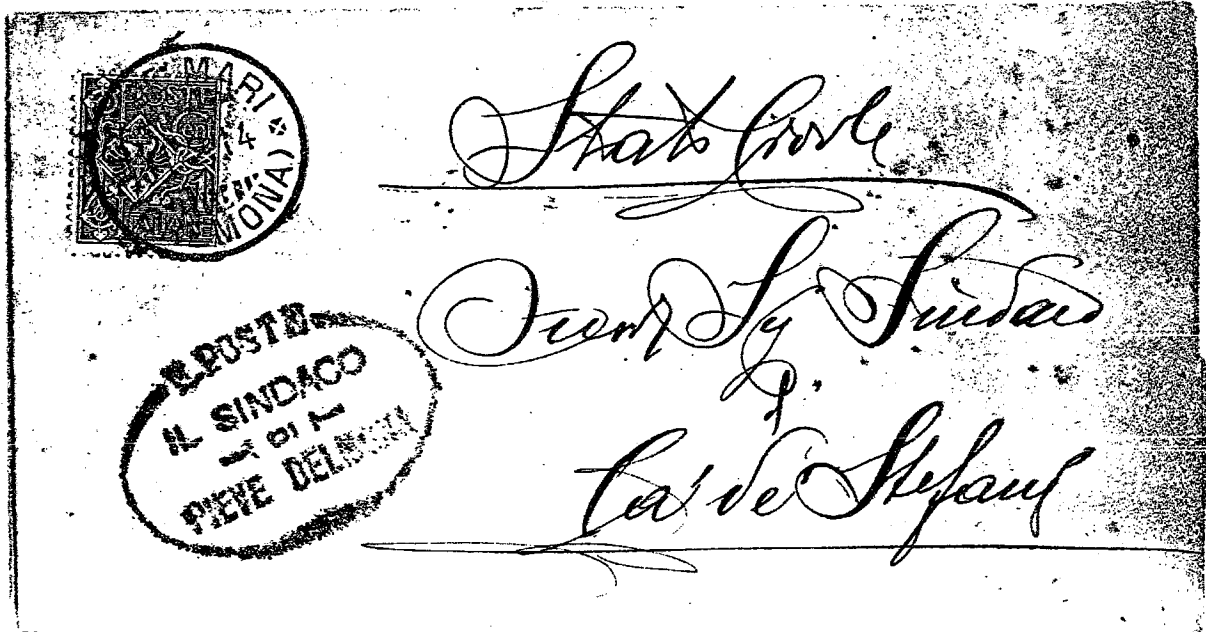 MARI
4
MONA)
POSTE
R. POSTE
IL SINDACO
DI
PIEVE DELMONA
Stato Civile
Sig Sindaco
di
Ca' de' Stefani